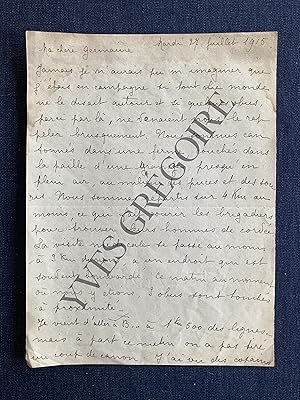 Mardi 27 juillet 1915
Ma chère Germaine
Jamais je n'aurais pu m'imaginer que
j'étais en campagne si tout le monde
ne le disait autour et si quelques obus,
parci par là, ne venaient nous le rap
peler brusquement. Nous sommes can
tonnés dans une ferme, couchés dans
la paille d'une presque en
plein air, au milieu des puces et des sou
ris. Nous sommes répartis sur 4 Km au
moins, ce qui fait courir les brigadiers
pour trouver leurs hommes de corvée
La visite se passe au moins
à 3 Km à un endroit qui est
souvent bombardé. Ce matin au moment
où nous y étions, 3 obus sont tombés
à proximité.
Je viens d'aller à B... à 1 km 500 des lignes
mais à part ce matin on a pas tiré
un coup de canon. J'ai vu des copains
YVES GRÉGOIRE